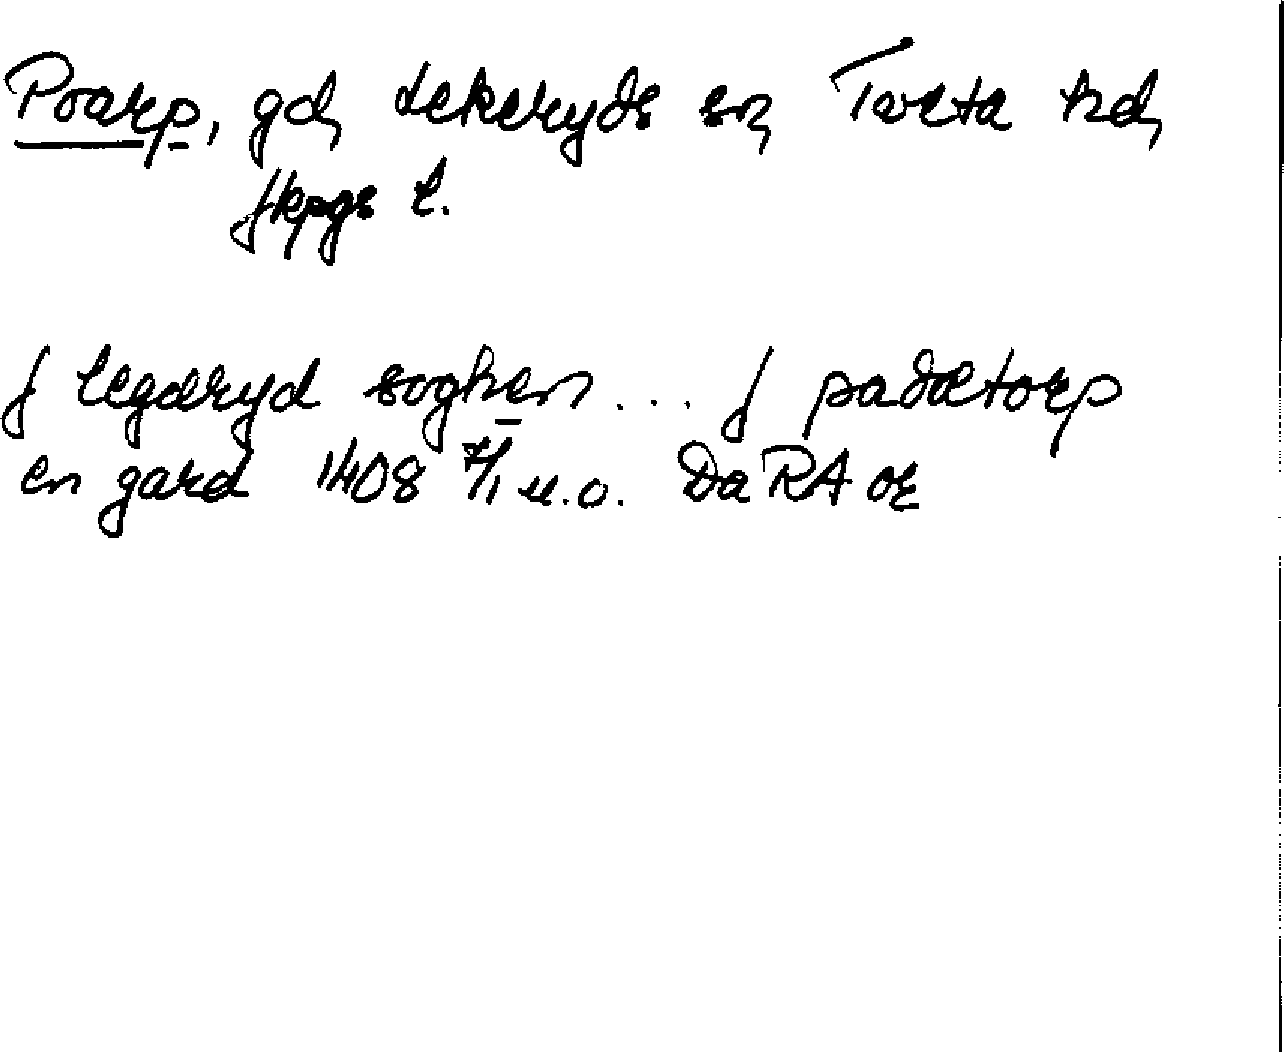 Poarp, gd, Lekeryds sn, Tveta hd,
Jkpgs l.
j legæryd soghen... j padætorp
en gard 1408 7/1 u.o. Da RA or